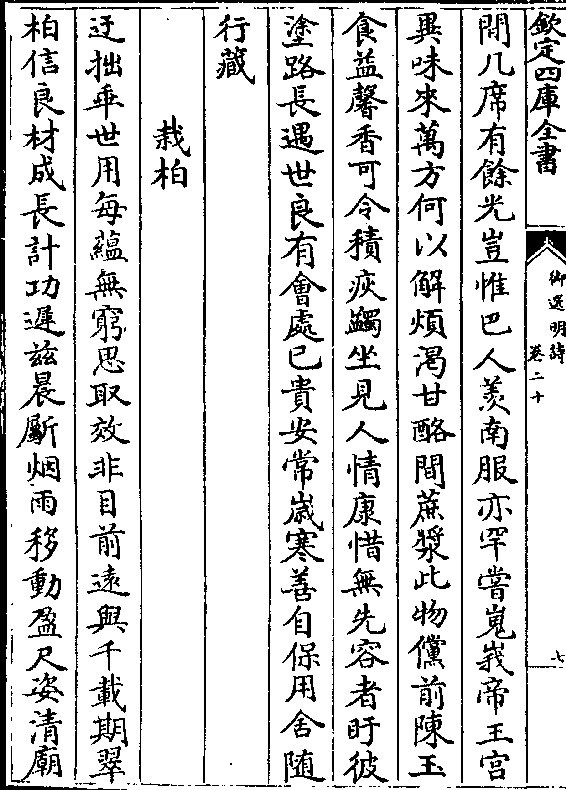 欽定四庫全書
御選明詩
卷二十
七
間几席有餘光豈惟巴人羡南服亦罕嘗嵬峩帝王宫
異味來萬方何以解煩渴甘酪間蔗漿此物儻前陳玉
食益馨香可令積疾蠲坐見人情康惜無先容者盱彼
塗路長遇世良有會處已貴安常嵗寒善自保用舍随
行藏
栽柏
迂拙乖世用每藴無窮思取效非目前遠與千載期翠
柏信良材成長計功遲兹晨斸烟雨移動盈尺姿清廟